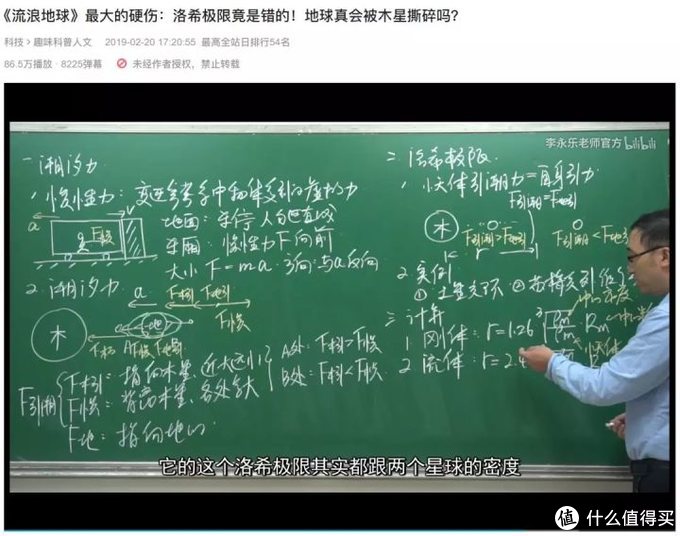 《流浪地球》最大的硬伤：洛希极限竟是错的！地球真会被木星撕碎吗？
科技 > 趣味科普人文 2019-02-20 17:20:55 最高全站日排行54名
86.5万播放 · 8225弹幕 未经作者授权，禁止转载
李永乐老师官方 bilibili
一 潮汐力
1 惯性力：变速参考系中物体受到的虚拟力
a
F惯
地面：车停 人
车厢：惯性力F向前
大小 F=ma 方向：与a反向
2. 潮汐力
a
F木引 F地引
F惯
木
地
F木引
A F惯 F地引
F引潮
F木引：指向木星，近大远小
F惯：背离木星，各处
F地：指向地心
A处：F木引>F惯
B处：F木引<F惯
二 洛希极限
1 小天体引潮力=自身引力
F引潮=F地引
木
F引潮>F地引
F引潮<F地引
2 实例
① 土星光环 ②
三 计算
1 刚体：r=1.26
2 流体：r=2.4
它的这个洛希极限其实都跟两个星球的密度
值 什么值得买